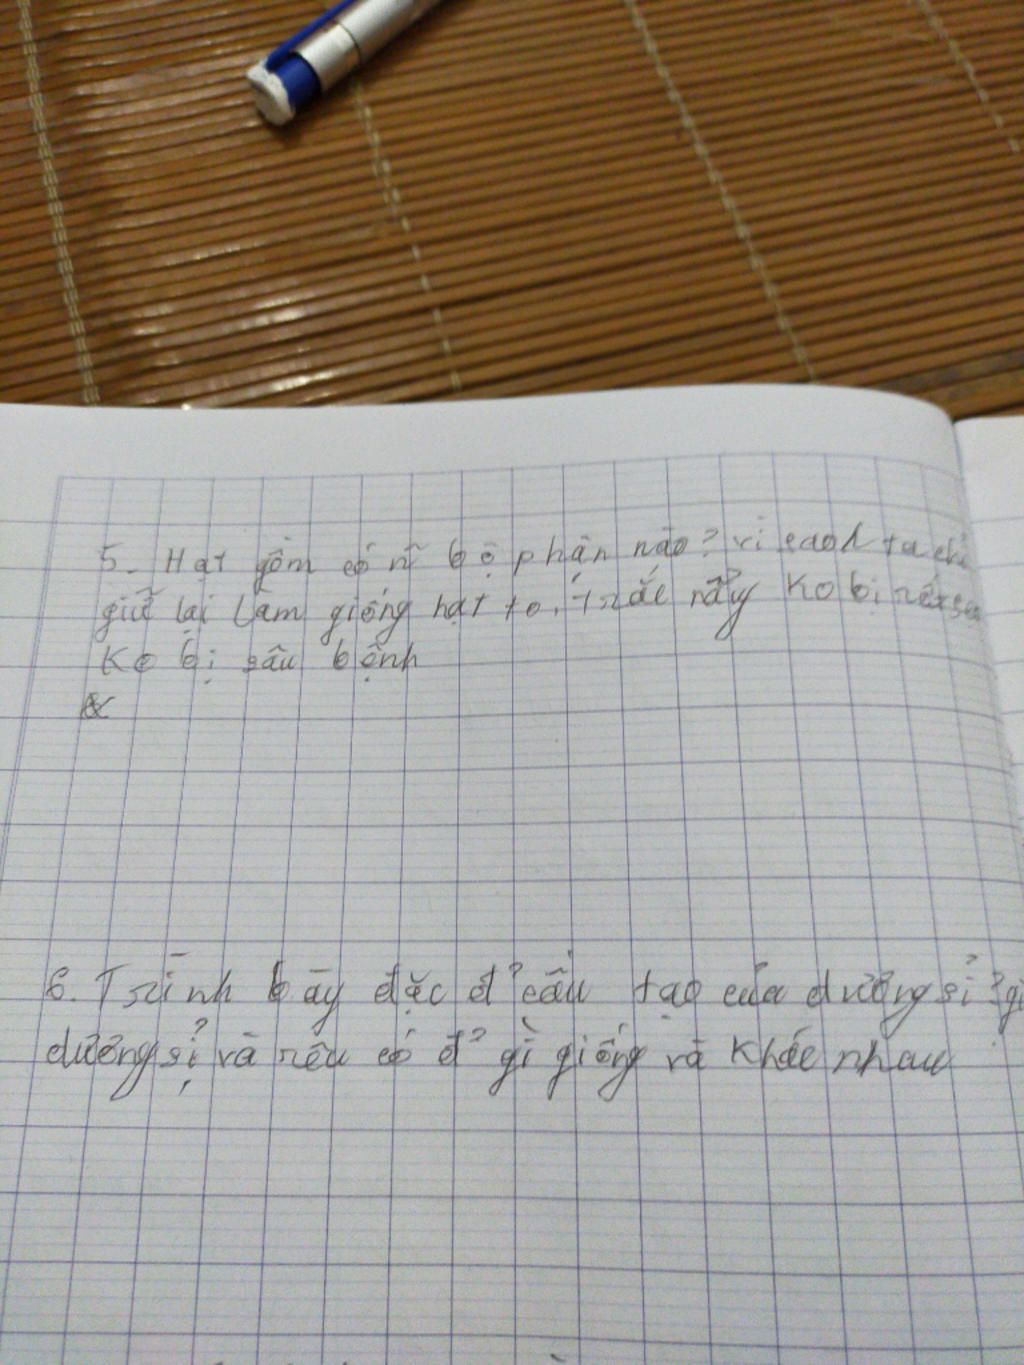 5. Hạt gồm có n~ bộ phận nào? vì sao ta chỉ
giữ lại làm giống hạt to, trắc nẩy ko bị
ko bị sâu bệnh
6. Trình bày đặc đ' cấu tạo của dương sỉ?
dương sỉ và rêu có đ' gì giống và khác nhau